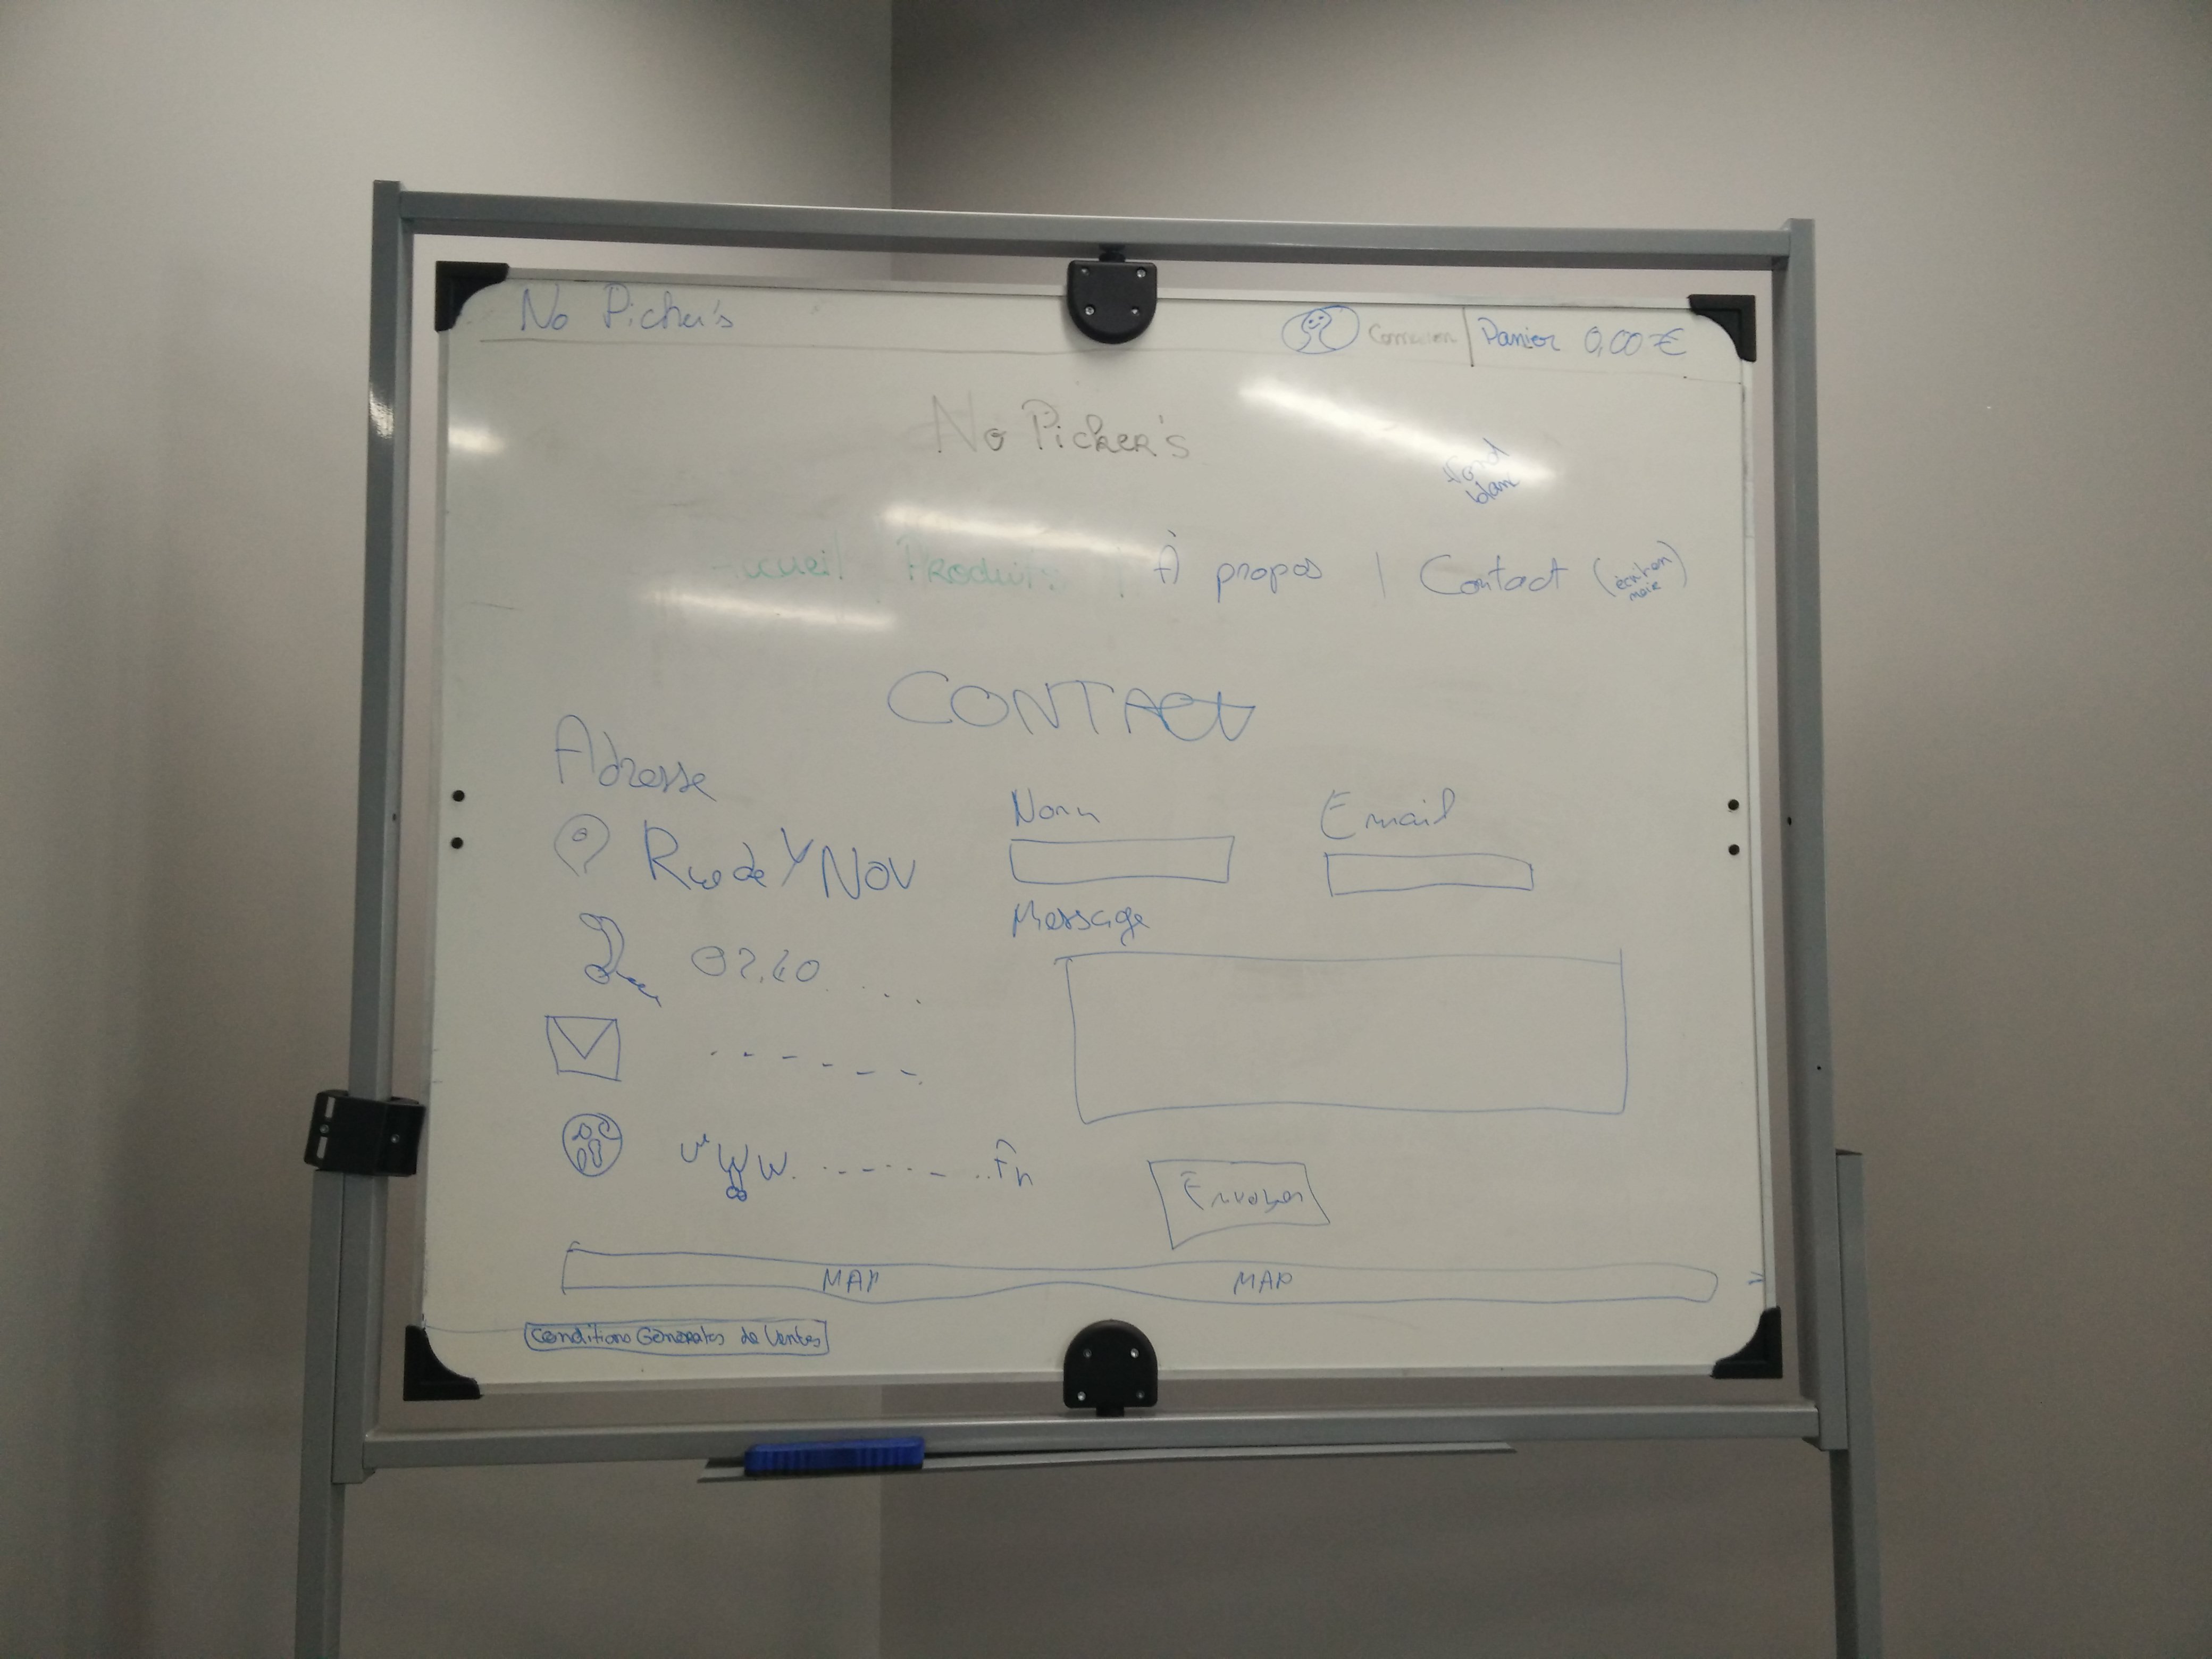 No Picker's
Connexion | Panier 0,00 €
No Picker's
Fond
blanc
Accueil | Produits | À propos | Contact (écrit en
noir)
CONTACT
Adresse
Nom Email
Rue de YNOV
Message
02.40. . . .
www. . . . . . . . .fr
Envoyer
MAP MAP
Conditions Générales de Ventes